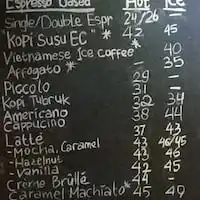 Espresso Based Hot Ice
"Single/Double Espr 24/26 -
"Kopi Susu EC" * 42 45
Vietnamese Ice Coffee * - 40
Affogato * - 35
Piccolo 29 -
Kopi Tubruk 31 -
Americano 32 34
Cappucino 38 44
Latté 37 43
-Mocha, Caramel 43 46/45
-Hazelnut 43 46
-Vanilla 42 45
Crème Brûllé 44
Caramel Machiato * 45 49